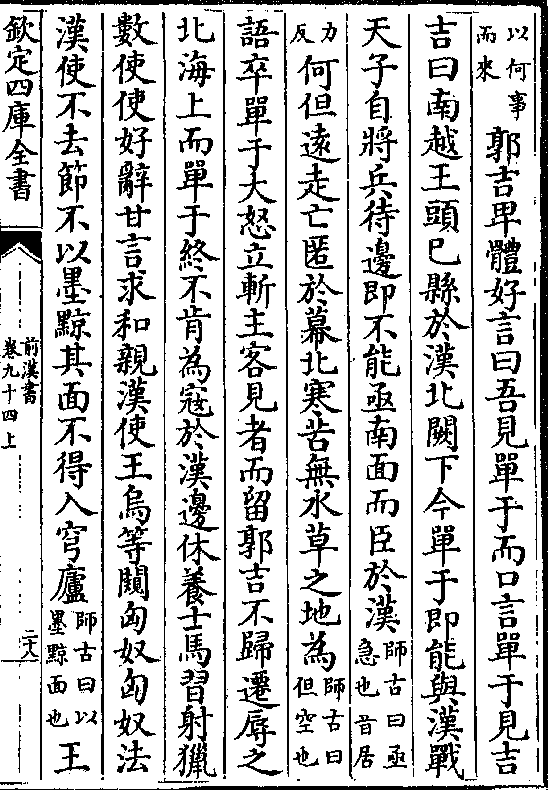 以何事而來郭吉卑體好言曰吾見單于而口言單于見吉
吉曰南越王頭已縣於漢北闕下今單于即能與漢戰
天子自將兵待邊即不能亟南面而臣於漢師古曰亟急也音居
力反何但遠走亡匿於幕北寒苦無水草之地為師古曰但空也
語卒單于大怒立斬主客見者而留郭吉不歸遷辱之
北海上而單于終不肯為寇於漢邊休養士馬習射獵
數使使好辭甘言求和親漢使王烏等闚匈奴匈奴法
漢使不去節不以墨黥其面不得入穹廬師古曰以墨黥面也王
欽定四庫全書
前漢書
卷九十四上
二十八